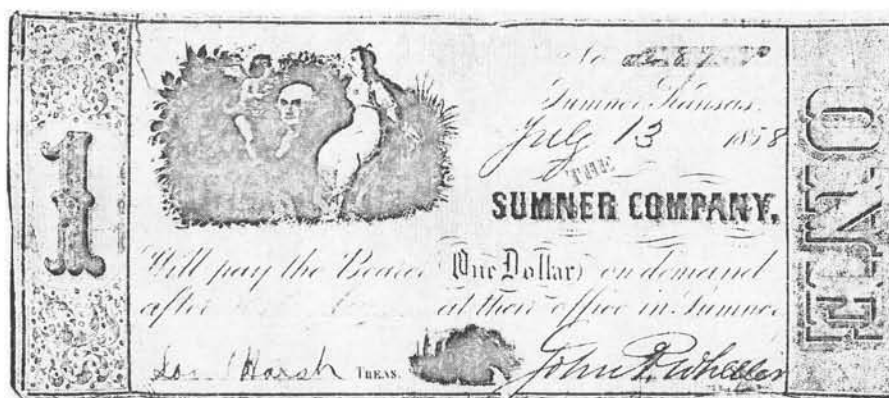 1
No
Sumner Kansas.
July 13 1858
THE
SUMNER COMPANY,
Will pay the Bearer One Dollar on demand
after at their office in Sumner
Harsh TREAS. John P. Wheeler
ONE